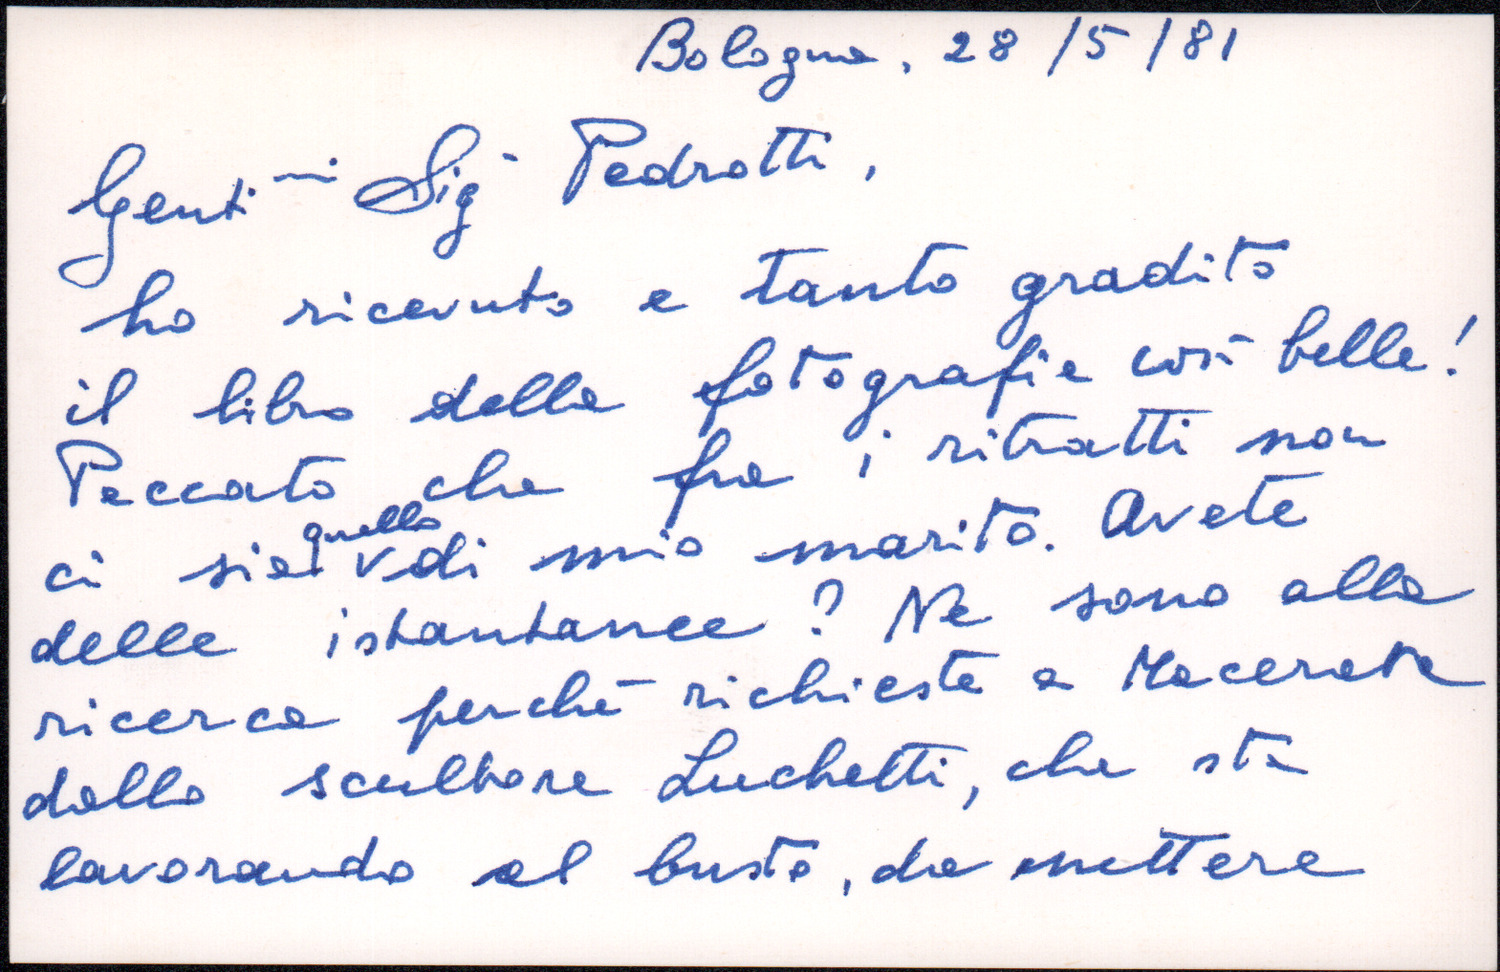 Bologna, 28/5/81
Gent.mi Sig. Pedrotti,
ho ricevuto e tanto gradito
il libro delle fotografie così belle!
Peccato che fra i ritratti non
quello
ci sia di mio marito. Avete
delle istantanee? Ne sono alla
ricerca perchè richieste a Macerata
dallo scultore Luchetti, che sta
lavorando al busto, da mettere